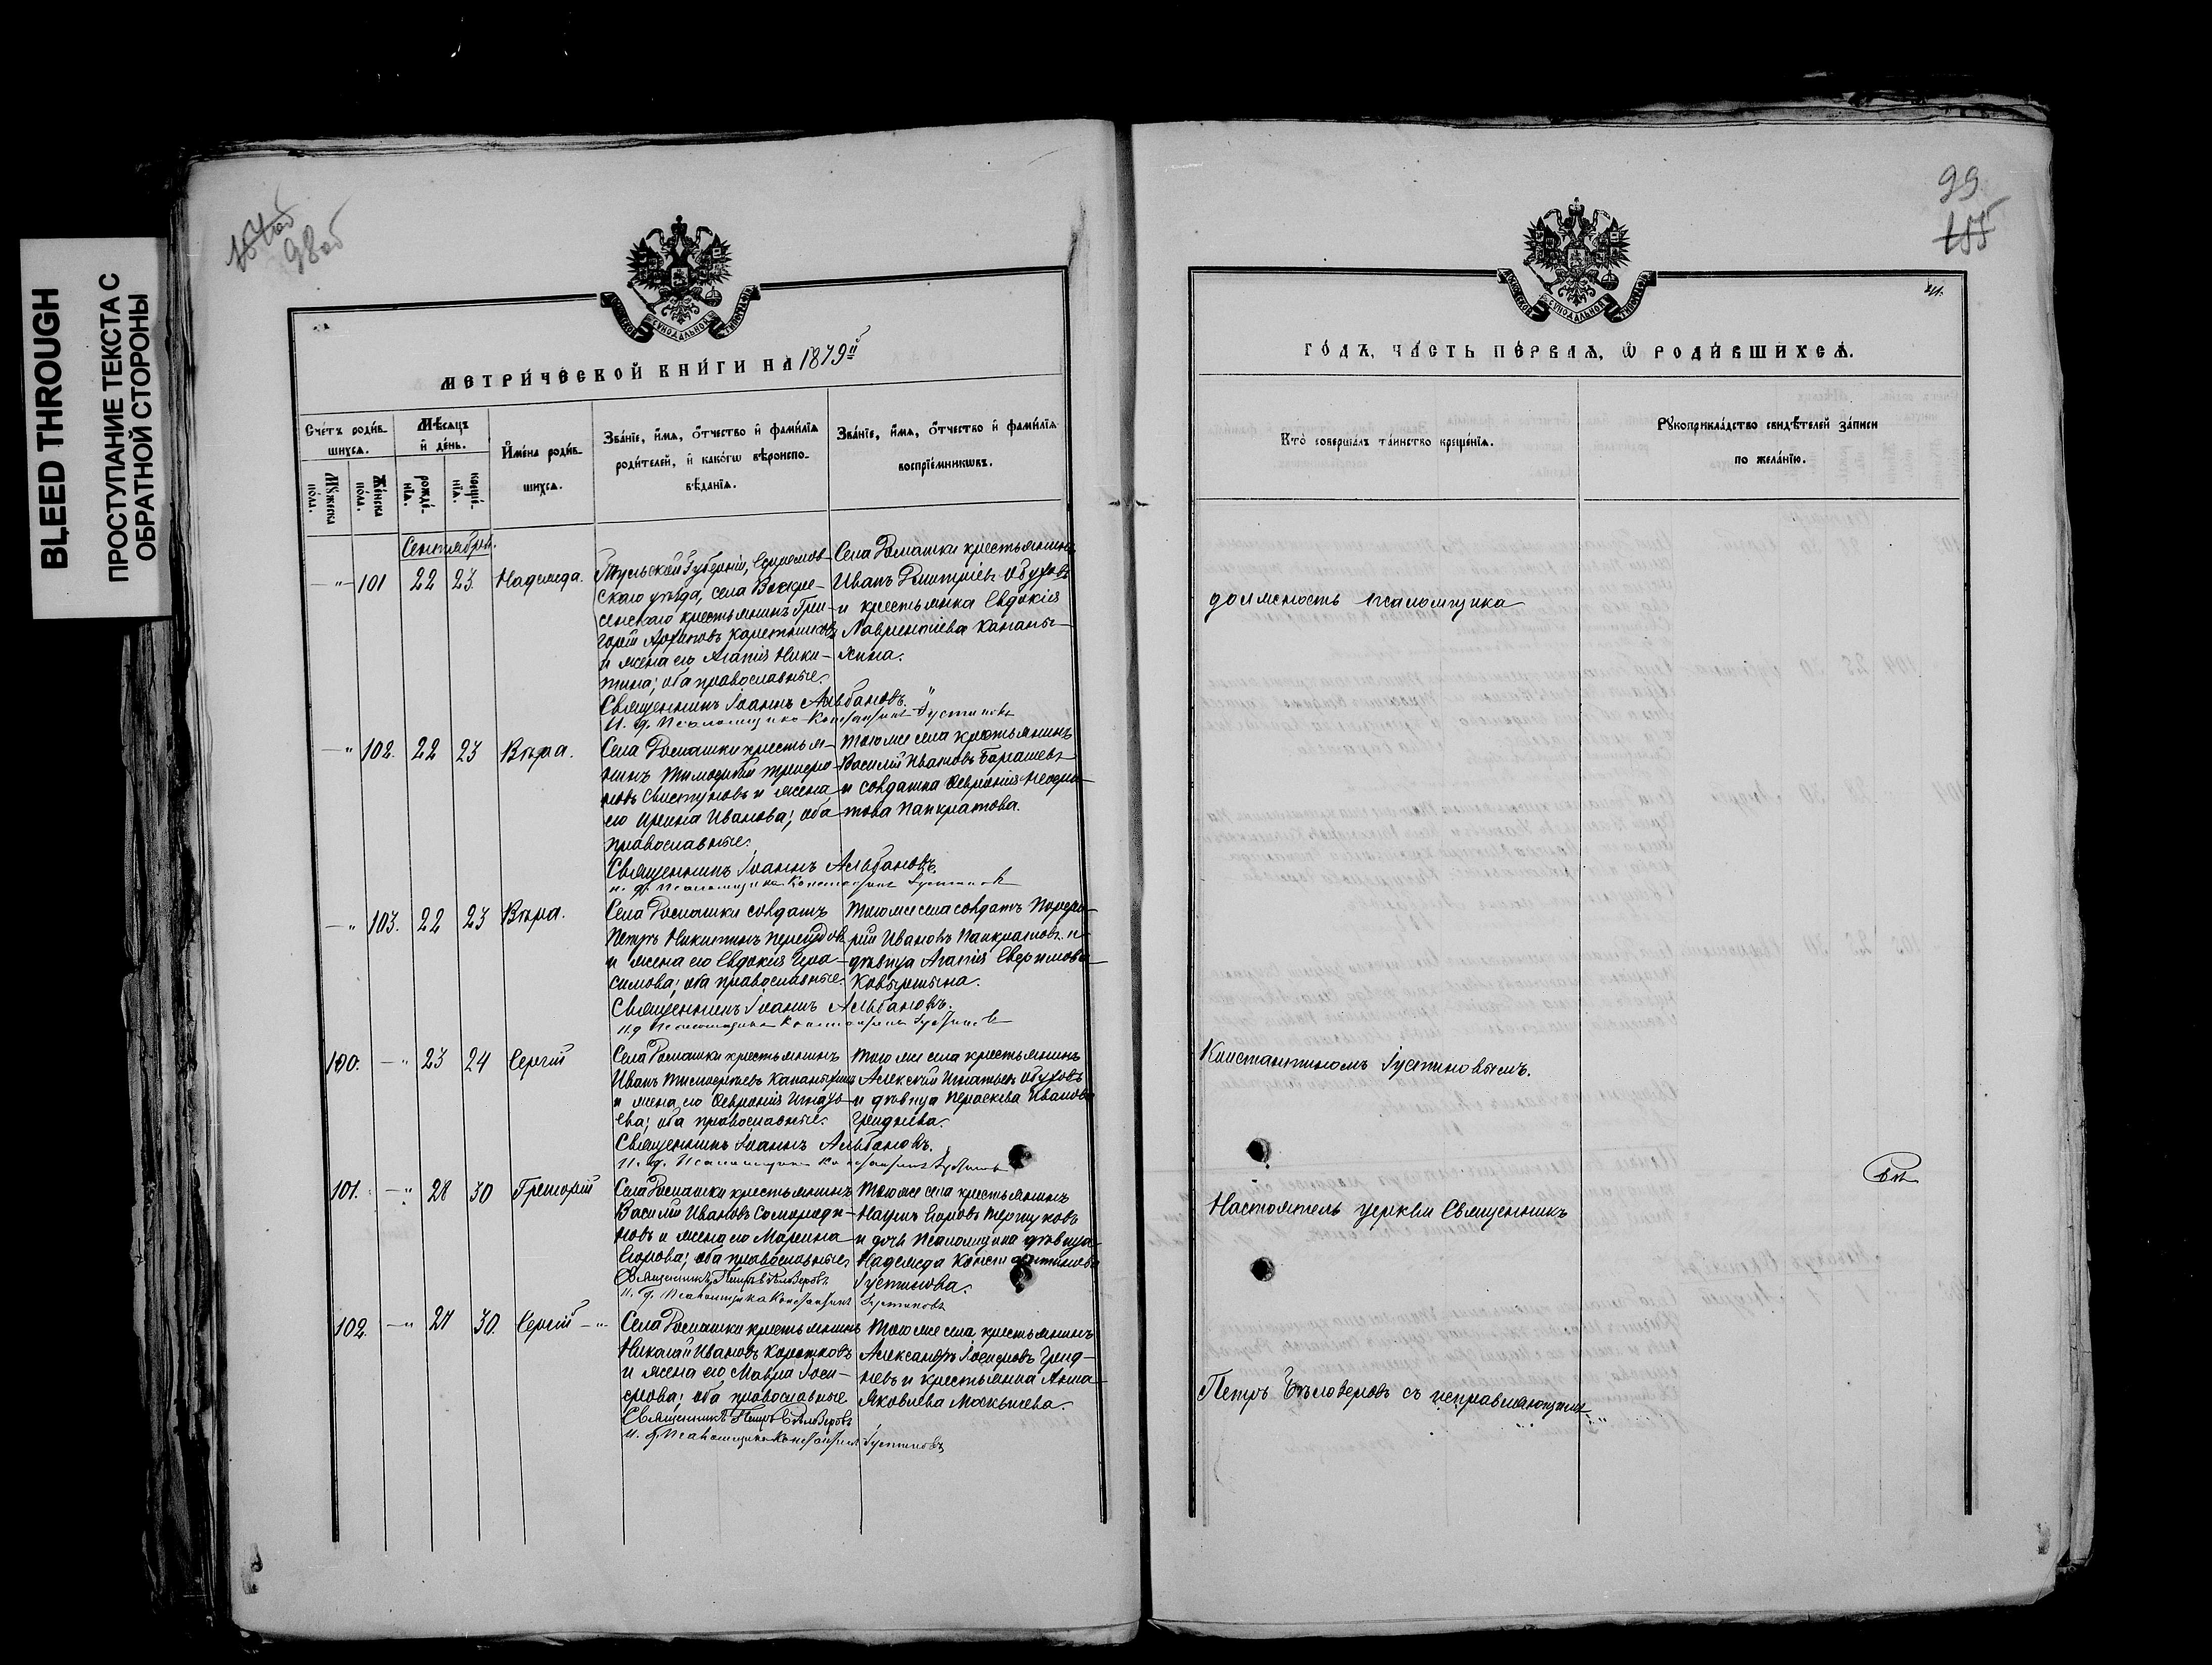 BLEED THROUGH
ПРОСТУПАНИЕ ТЕКСТА С
ОБРАТНОЙ СТОРОНЫ
98об
99
МЕТРИ́ЧЕСКОЙ КНИ́ГИ НА 1879й
ГО́ДЪ, ЧА́СТЬ ПЕ́РВАѦ, Ѽ РОДИ́ВШИХСѦ.
Сче́тъ роди́в-
шихсѧ.
Мꙋ́жеска
по́ла.
Же́нска
по́ла.
Мѣ́сѧцъ
и҆ де́нь.
рожде́-
нїѧ.
креще́-
нїѧ.
И҆мена̀ роди́в-
шихсѧ.
Зва́нїе, и҆́мѧ, ѻ҆́тчество и҆ фами́лїѧ
роди́телей, и҆ како́гѡ вѣроиспо-
вѣ́данїѧ.
Зва́нїе, и҆́мѧ, ѻ҆́тчество и҆ фами́лїѧ
воспрїе́мникѡвъ.
Кто̀ соверша́лъ та́инство креще́нїѧ.
Рꙋкоприкла́дство свидѣ́телей за́писи
по жела́нїю.
Сентябрь.
101 22 23. Надежда.
Тульской Губерніи, Ефремов-
скаго уѣзда, села Воскре-
сенскаго крестьянинъ Гри-
горій Архиповъ Каретниковъ
и жена его Агапія Ники-
тина; оба православные.
Села Ромашки крестьянинъ
Иванъ Дмитріевъ Обуховъ
и крестьянка Евдокія
Лаврентіева Каканы-
хина.
Священникъ Іоаннъ Альбановъ.
И. д. Псаломщика Константинъ Густиновъ
должность псаломщика
102. 22 23 Вѣра.
Села Ромашки крестья-
нинъ Тимофей Трифо-
новъ Свистуновъ и жена
его Ирина Иванова; оба
православные.
Тогоже села крестьянинъ
Василій Ивановъ Барашевъ
и солдатка Февронія
Панкратова.
Священникъ Іоаннъ Альбановъ.
и. д. Псаломщика Константинъ Густиновъ
103. 22 23 Вѣра.
Села Ромашки солдатъ
Петръ Никитинъ
и жена его Евдокія Гра-
симова; оба православные.
Тогоже села солдатъ Порфи-
рій Ивановъ Панкратовъ и
дѣвица Агапія
Священникъ Іоаннъ Альбановъ.
И. д. Псаломщика Константинъ Густиновъ
100. 23 24 Сергій
Села Ромашки крестьянинъ
Иванъ Тимофеевъ Каканыхинъ
и жена его Февронія Игнать-
ева; оба православные.
Тогоже села крестьянинъ
Алексѣй Игнатьевъ Обуховъ
и дѣвица Параскева Иванова
Гриднева.
Священникъ Іоаннъ Альбановъ.
И. д. Псаломщика Константинъ Густиновъ
Константиномъ Густиновымъ.
101. 28 30 Григорій
Села Ромашки крестьянинъ
Василій Ивановъ
и жена его Марина
Егорова; оба православные
Тогоже села крестьянинъ
Наумъ Егоровъ
и дочь Псаломщика дѣвица
Надежда Константинова
Густинова.
Священникъ Петръ Бѣлозеровъ
И. д. Псаломщика Константинъ Густиновъ
Настоятель церкви Священникъ
102. 30. Сергій
Села Ромашки крестьянинъ
Николай Ивановъ Коротковъ
и жена его Мавра Іоси-
фова; оба православные
Тогоже села крестьянинъ
Александръ Іосифовъ Грид-
невъ и крестьянка Анна
Яковлева
Священникъ Петръ Бѣлозеровъ
И. д. Псаломщика Константинъ Густиновъ
Петръ Бѣлозеровъ съ исправляющимъ